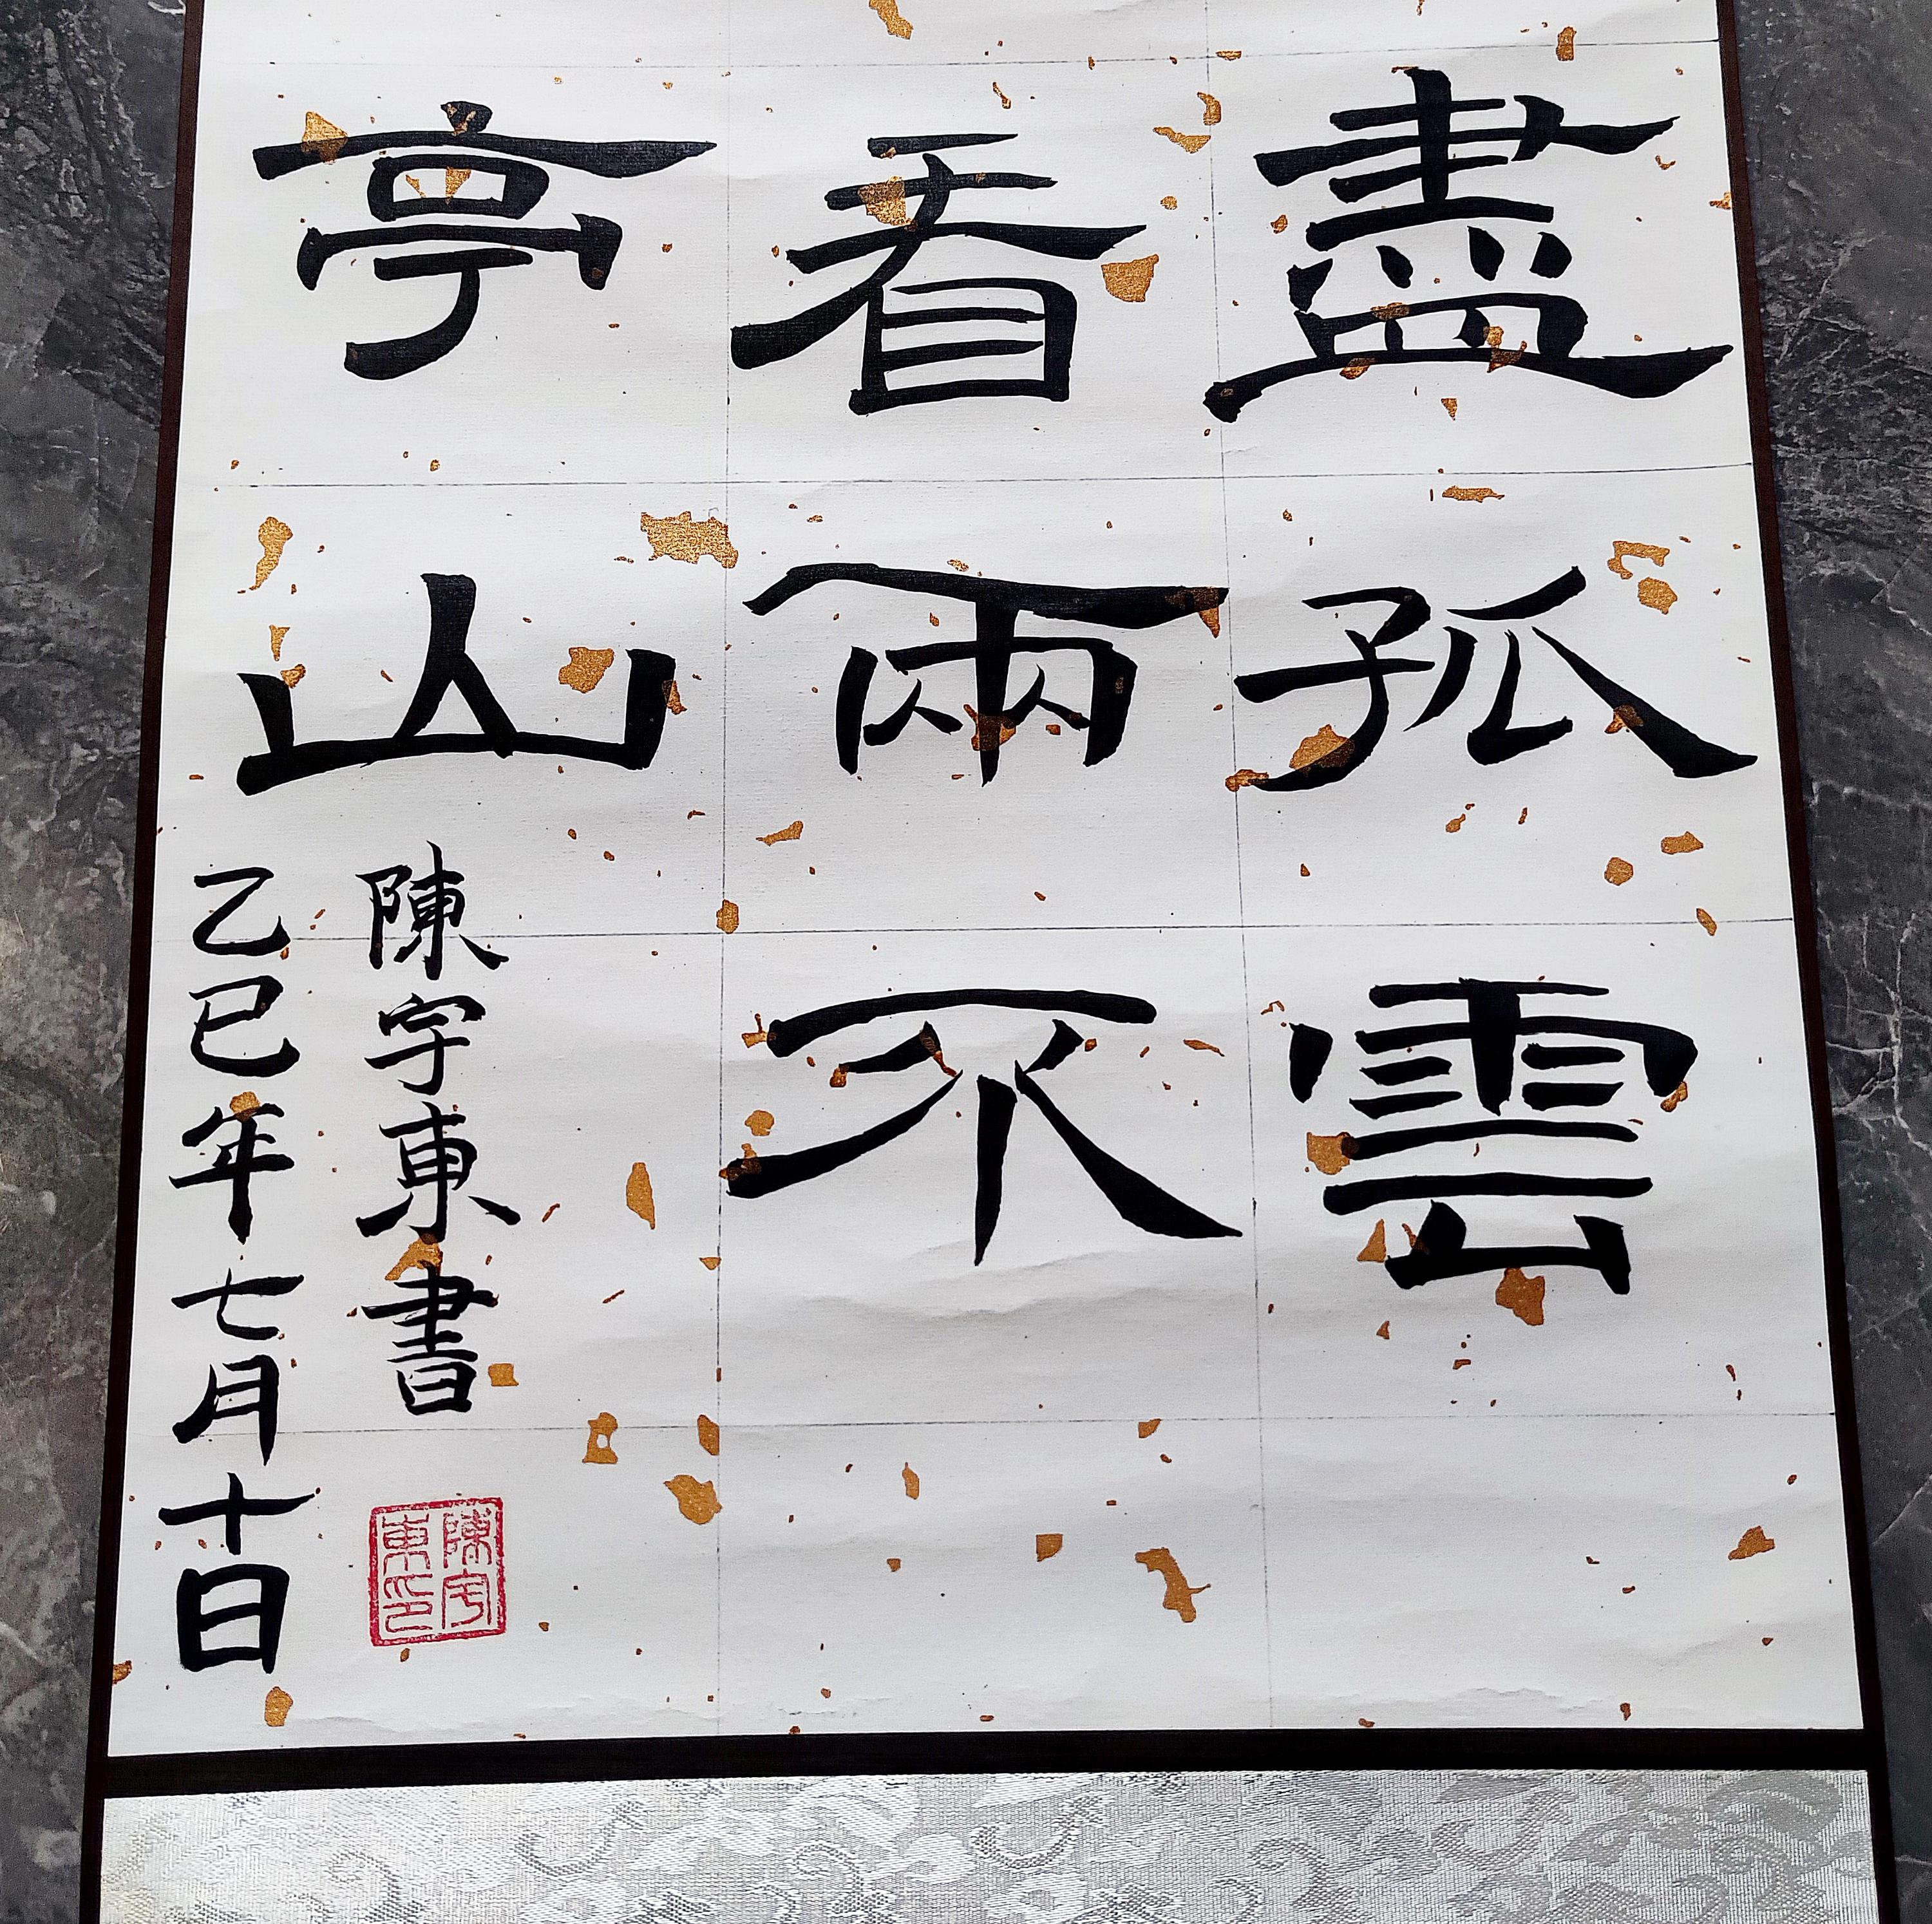 盡孤雲
看兩不
亭山
陳宇東書
乙巳年七月十日
陳宇東印